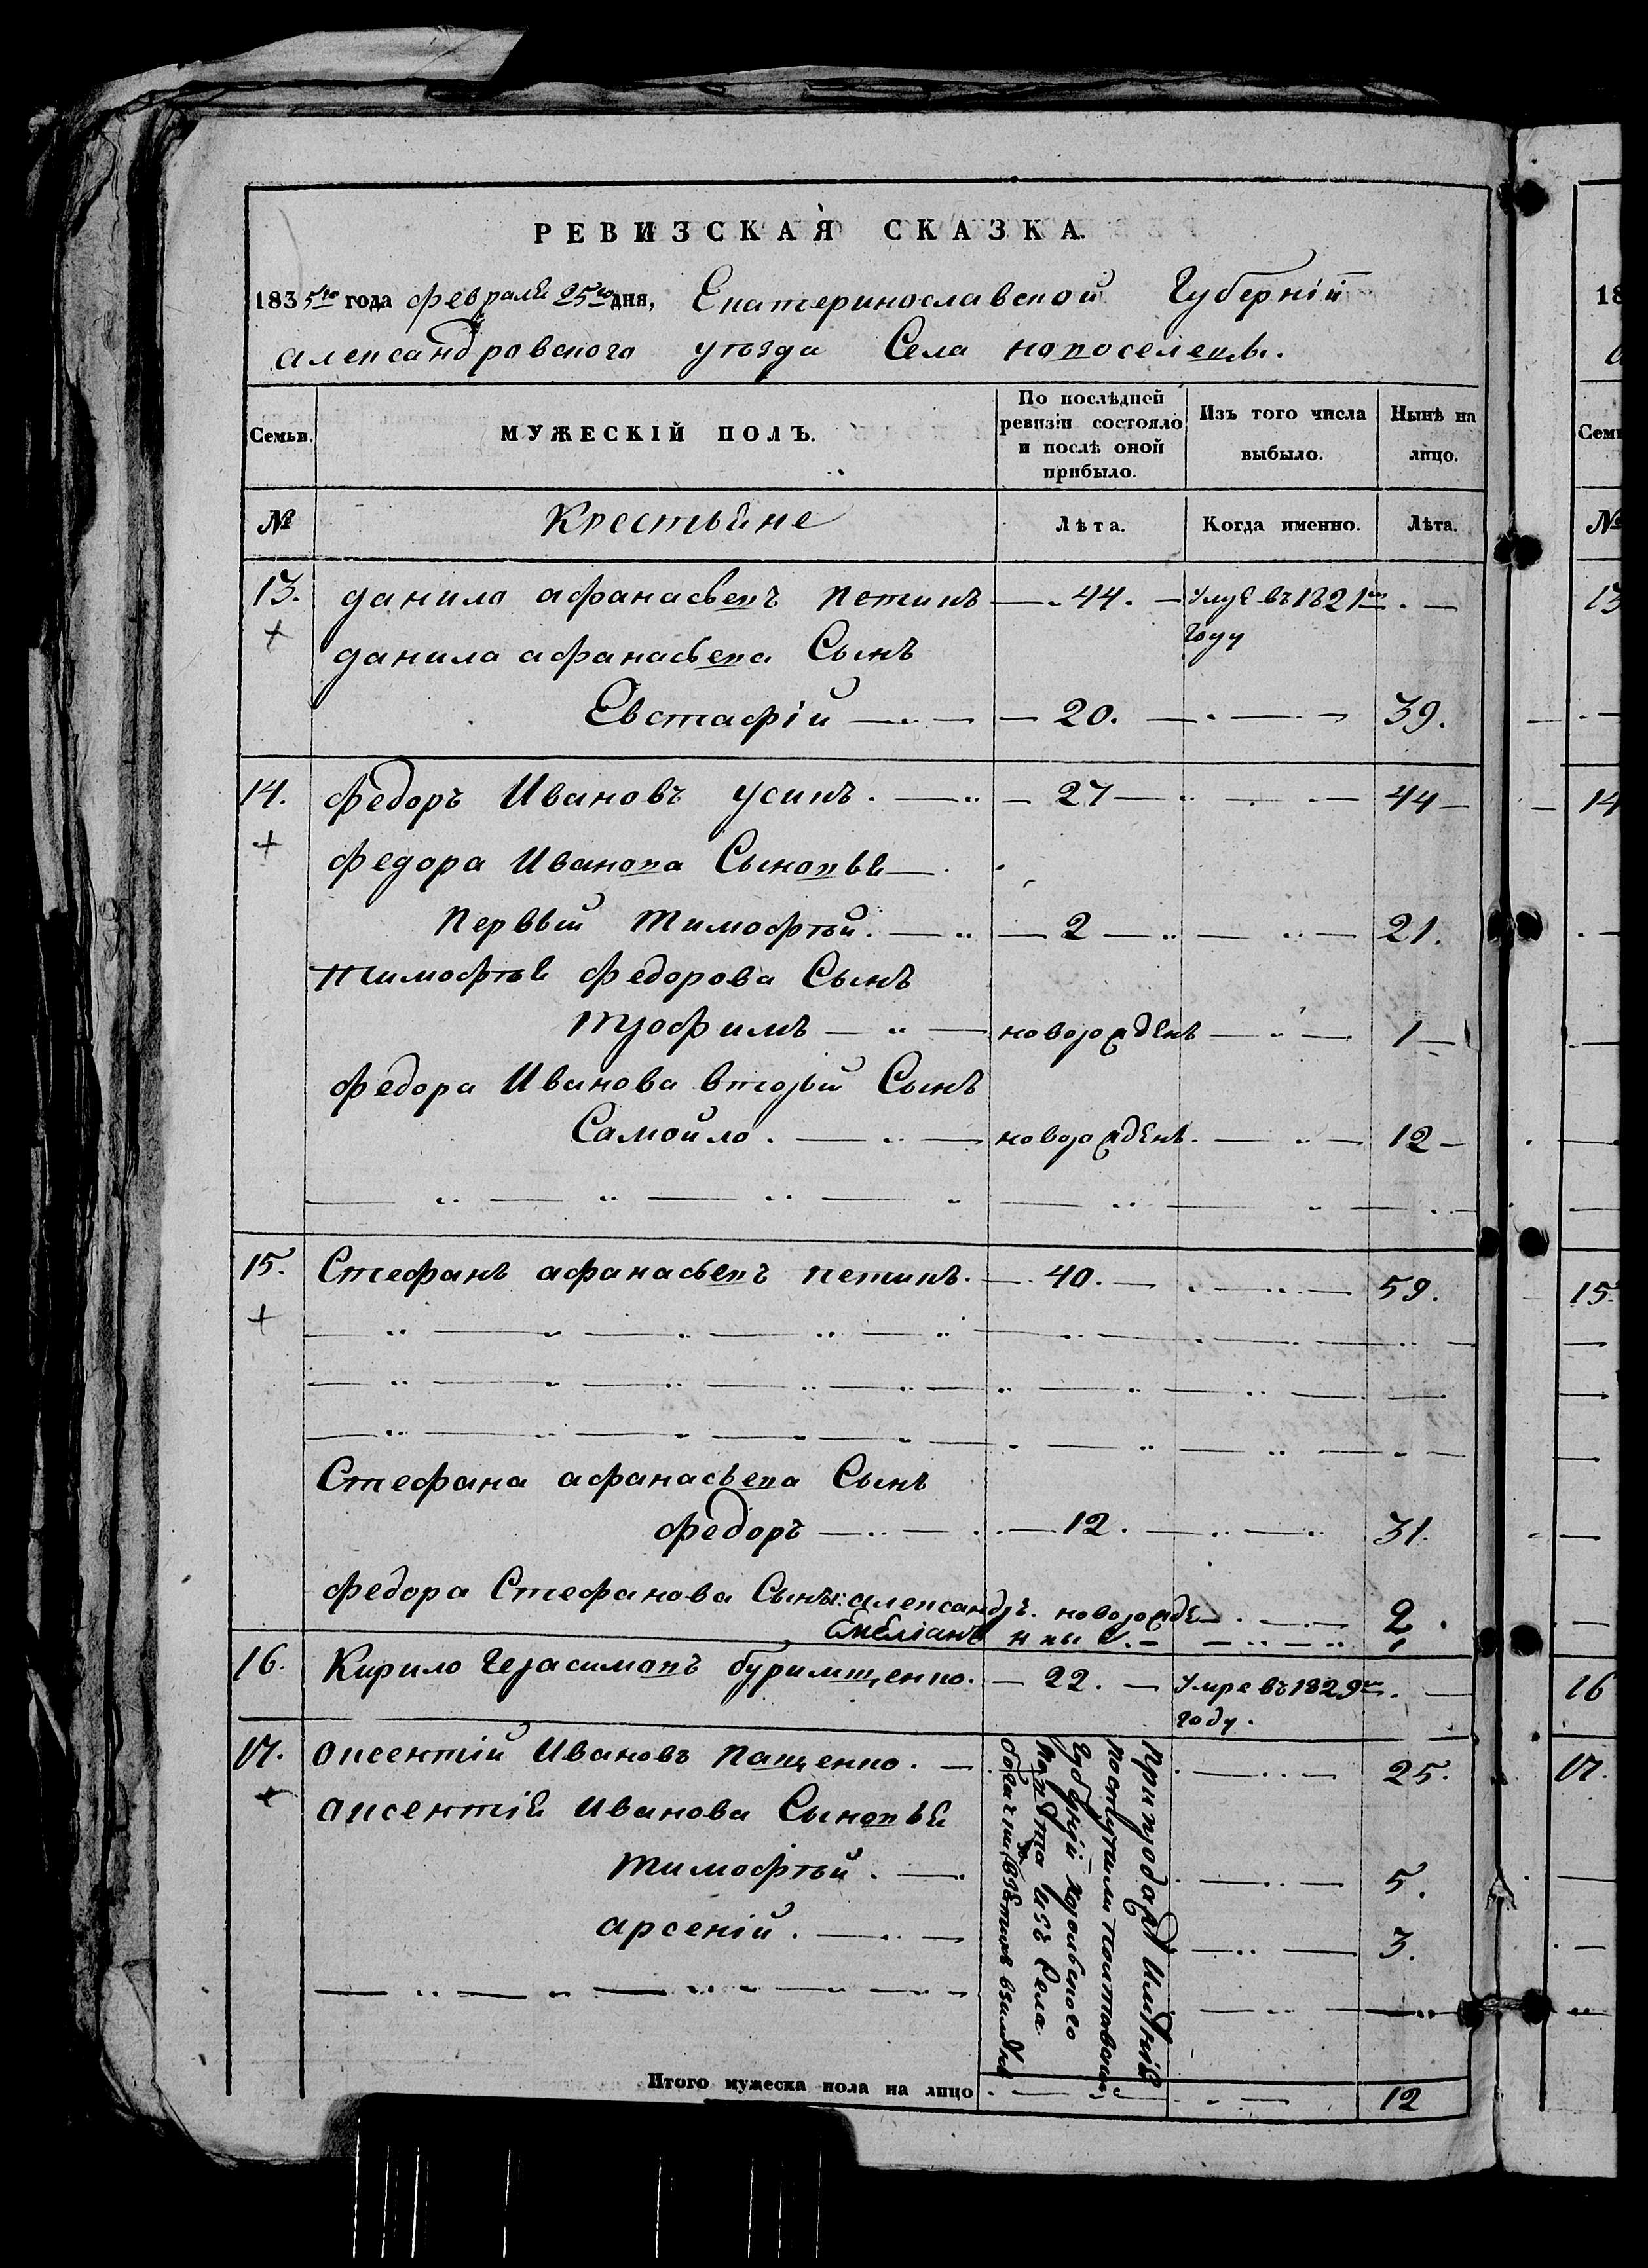 РЕВИЗСКАЯ СКАЗКА.
1835го года февраля 25го дня, Екатеринославской Губерніи
александровского уѣзда Села новоселевк.
Семьи. МУЖЕСКІЙ ПОЛЪ. По послѣдней ревизіи состояло и послѣ оной прибыло. Изъ того числа выбыло. Нынѣ на лицо.
№ Крестьяне Лѣта. Когда именно. Лѣта.
13. данило афанасьевъ петикъ 44. Умре въ 1821м году
данила афанасьева Сынъ
Евстафій 20. 39.
14. федоръ Ивановъ усикъ. 27 44
федора Иванова Сыновья
первый тимофѣй. 2 21.
тимофѣя федорова Сынъ
трофимъ новорожденъ 1
федора Иванова вторый Сынъ
Самойло. новорожденъ. 12
15. Стефанъ афанасьевъ петикъ. 40. 59.
Стефана афанасьева Сынъ
федоръ 12. 31.
федора Стефанова Сыны: александръ. новорожде 2.
Емеліанъ нные. 1
16. Кирило Герасимовъ буримщенко. 22. Умре въ 1829м году.
17. авксентій Ивановъ пащенко. 25.
авксентія Иванова Сыновья
тимофѣй. 5.
арсеній. 3.
При продажи имѣнія
поступили полтавской
Губерніи хорольского
повѣта изъ Села
Итого мужеска пола на лицо 12
18
Семьи
№
13
14
15
16
17.